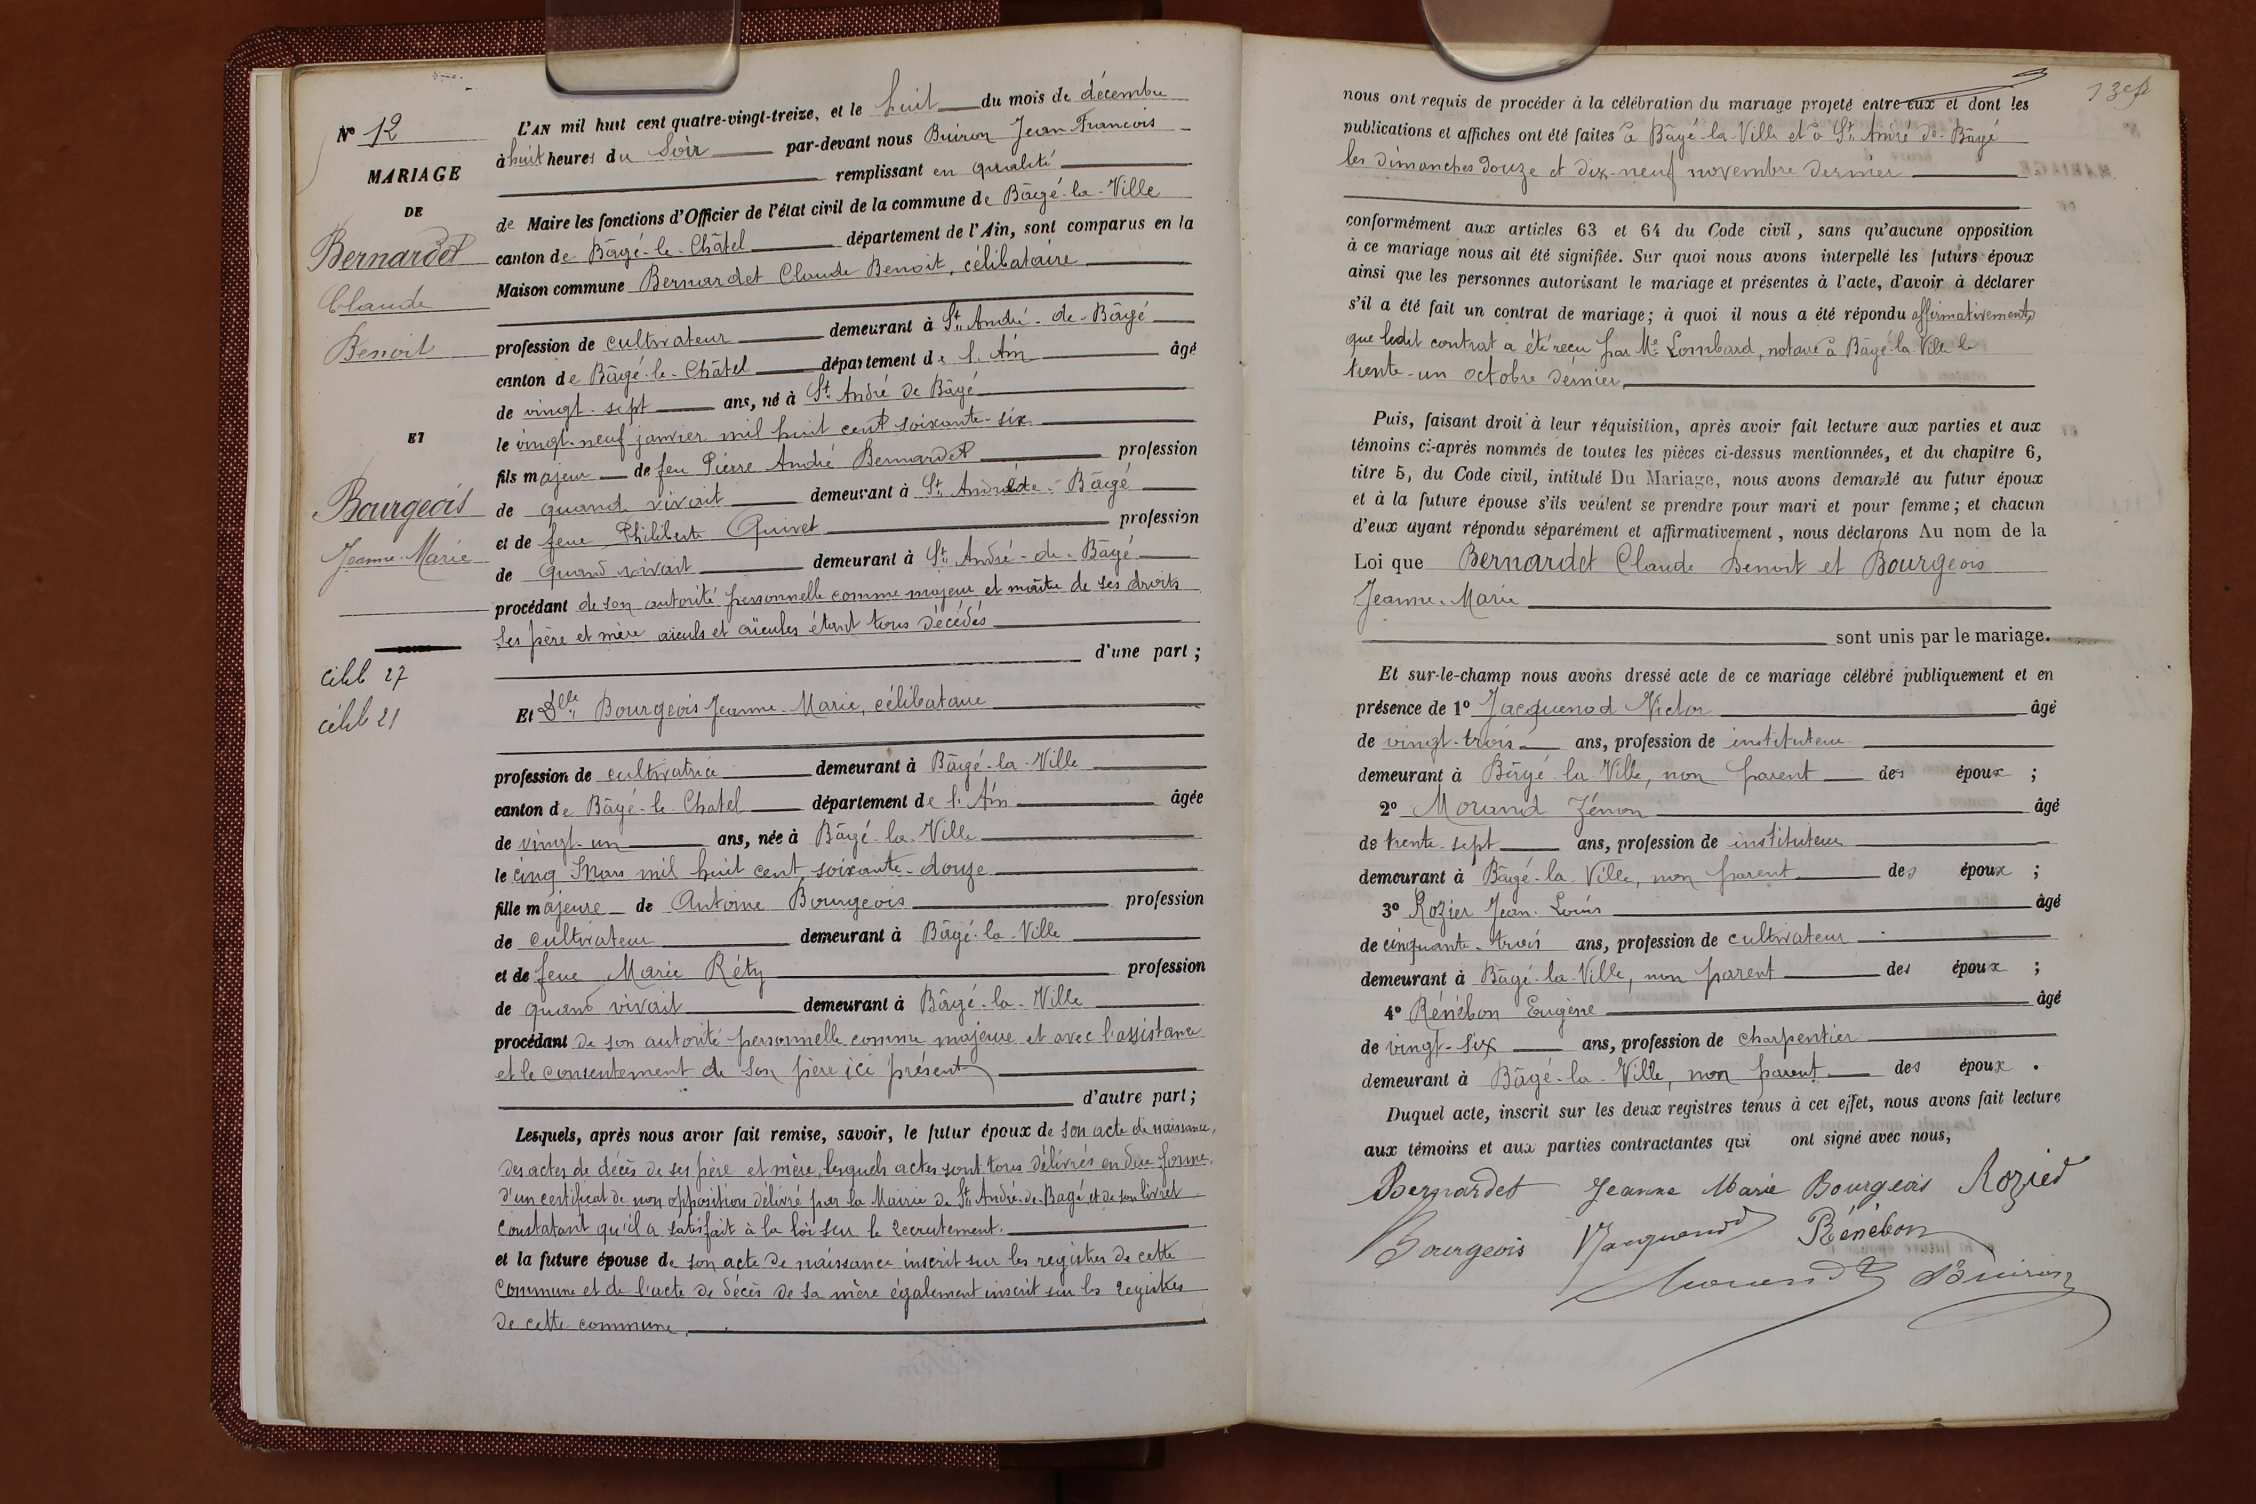 N° 12
MARIAGE
DE
Bernardet
Claude
Benoit
ET
Bourgeois
Jeanne-Marie
célib 27
célib 21
L'AN mil huit cent quatre-vingt-treize, et le huit du mois de décembre
à huit heures du Soir par-devant nous Buiron Jean François
remplissant en qualité
de Maire les fonctions d'Officier de l'état civil de la commune de Bâgé-la-Ville
canton de Bâgé-le-Châtel département de l'Ain, sont comparus en la
Maison commune Bernardet Claude Benoit, célibataire
profession de cultivateur demeurant à St André-de-Bâgé
canton de Bâgé-le-Châtel département de l'Ain âgé
de vingt-sept ans, né à St André de Bâgé
le vingt-neuf janvier mil huit cent soixante-six
fils majeur de feu Pierre André Bernardet profession
de quand vivait demeurant à St André de Bâgé
et de feue Philiberte Quivet profession
de quand vivait demeurant à St André-de-Bâgé
procédant de son autorité personnelle comme majeur et maître de ses droits
ses père et mère aïeuls et aïeules étant tous décédés
d'une part ;
Et Dlle Bourgeois Jeanne-Marie, célibataire
profession de cultivatrice demeurant à Bâgé-la-Ville
canton de Bâgé-le-Chatel département de l'Ain âgée
de vingt-un ans, née à Bâgé-la-Ville
le cinq Mars mil huit cent soixante-douze
fille majeure de Antoine Bourgeois profession
de cultivateur demeurant à Bâgé-la-Ville
et de feue Marie Réty profession
de quand vivait demeurant à Bâgé-la-Ville
procédant de son autorité personnelle comme majeure et avec l'assistance
et le consentement de son père ici présent
d'autre part ;
Lesquels, après nous avoir fait remise, savoir, le futur époux de son acte de naissance,
des actes de décès de ses père et mère, lesquels actes sont tous délivrés en due forme,
d'un certificat de non opposition délivré par la Mairie de St André-de-Bagé et de son livret
constatant qu'il a satisfait à la loi sur le recrutement.
et la future épouse de son acte de naissance inscrit sur les registres de cette
commune et de l'acte de décès de sa mère également inscrit sur les registres
de cette commune.
nous ont requis de procéder à la célébration du mariage projeté entre eux et dont les
publications et affiches ont été faites à Bâgé-la-Ville et à St André de Bâgé
les dimanches douze et dix-neuf novembre dernier
conformément aux articles 63 et 64 du Code civil, sans qu'aucune opposition
à ce mariage nous ait été signifiée. Sur quoi nous avons interpellé les futurs époux
ainsi que les personnes autorisant le mariage et présentes à l'acte, d'avoir à déclarer
s'il a été fait un contrat de mariage ; à quoi il nous a été répondu affirmativement,
que ledit contrat a été reçu par Me Lombard, notaire à Bâgé-la-Ville le
trente-un octobre dernier
Puis, faisant droit à leur réquisition, après avoir fait lecture aux parties et aux
témoins ci-après nommés de toutes les pièces ci-dessus mentionnées, et du chapitre 6,
titre 5, du Code civil, intitulé Du Mariage, nous avons demandé au futur époux
et à la future épouse s'ils veulent se prendre pour mari et pour femme ; et chacun
d'eux ayant répondu séparément et affirmativement, nous déclarons Au nom de la
Loi que Bernardet Claude Benoit et Bourgeois
Jeanne-Marie
sont unis par le mariage.
Et sur-le-champ nous avons dressé acte de ce mariage célébré publiquement et en
présence de 1° Jacquenod Victor âgé
de vingt-trois ans, profession de instituteur
demeurant à Bâgé la Ville, non parent des époux ;
2° Morand Zénon âgé
de trente-sept ans, profession de instituteur
demeurant à Bâgé-la-Ville, non parent des époux ;
3° Rozier Jean-Louis âgé
de cinquante-trois ans, profession de cultivateur
demeurant à Bâgé-la-Ville, non parent des époux ;
4° Rénébon Eugène âgé
de vingt-six ans, profession de charpentier
demeurant à Bâgé-la-Ville, non parent des époux.
Duquel acte, inscrit sur les deux registres tenus à cet effet, nous avons fait lecture
aux témoins et aux parties contractantes qui ont signé avec nous,
Bernardet Jeanne Marie Bourgeois Rozier
Bourgeois Jacquenod Rénébon
Morand Buiron